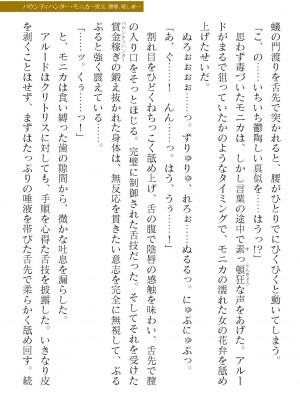 バウンティハンター・モニカ
蟻の門渡りを舌先で突かれると、腰がひとりでにびくびくと動いてしまう。
「こ、の……いちいち鬱陶しい真似を……はうっ!?」
思わず毒づいたモニカは、しかし言葉の途中で素っ頓狂な声をあげた。アルー
ドがまるで狙っていたかのようなタイミングで、モニカの濡れた女の花弁を舐め
上げたせいだ。
ぬろぉぉぉぉ……っ。ずりゅりゅ、れろぉ……ぬるるっ。にゅぷにゅぷ……。
「あ、ぐ……！　んん……っ。はう、うぅ……っ！」
割れ目をひどくねちっこく舐め上げ、舌の腹で陰唇の感触を味わい、舌先で膣
の入り口をそっとほじる。完璧に制御された舌技だった。そしてそれを受けた
賞金稼ぎの鍛え抜かれた身体は、無反応を貫きたい意志を完全に無視して、ぶる
ぶると強く震えている……。
「……ッ。くぅっ……！」
モニカは食い縛った歯の隙間から、微かな吐息を漏らした。
アルードはクリトリスに対しても、手順を心得た舌技を披露した。いきなり皮
を剥くことはせず、まずはたっぷりの唾液を帯びた舌先で柔らかく舐め回す。続